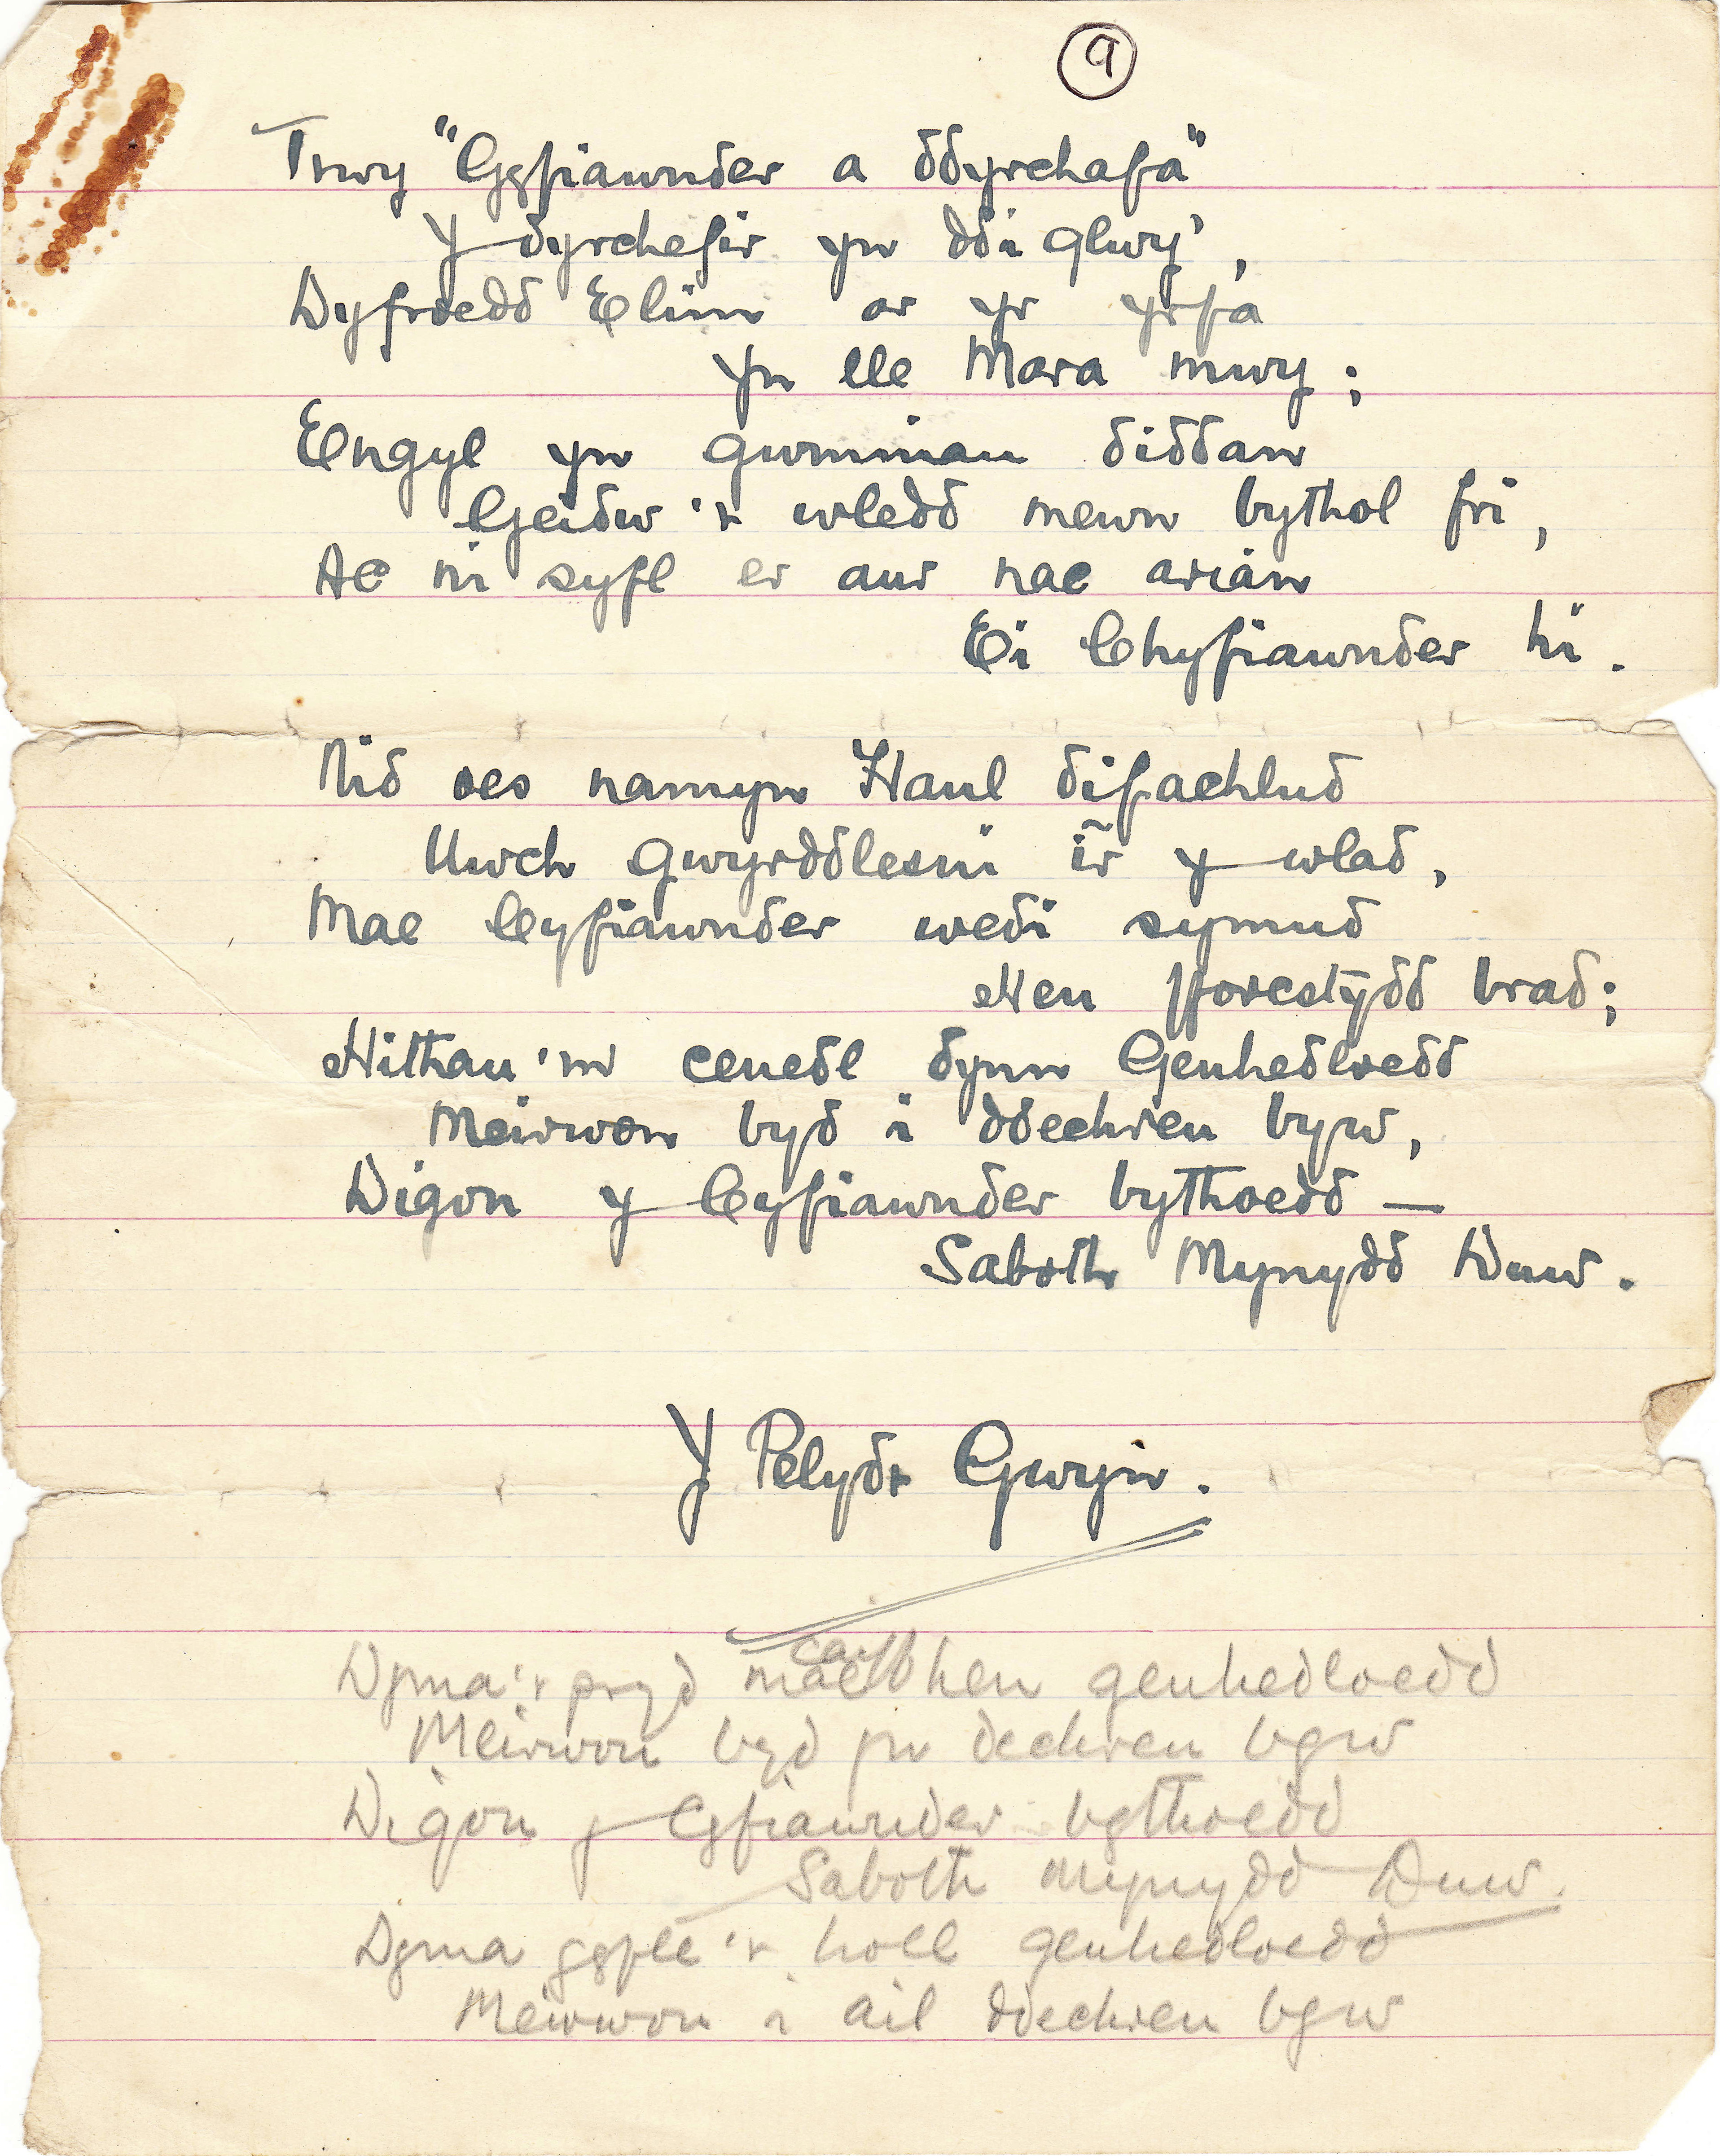 9
Trwy "Gyfiawnder a ddyrchafa"
Y dyrchefir yn ddi glwy',
Dyfroedd Elim ar yr yrfa
Yn lle Mara mwy;
Engyl yn gwmnïau diddan
Geidw 'r wledd mewn bythol fri,
Ac ni syfl er aur nac arian
Ei Chyfiawnder hi.
Nid oes namyn Haul difachlud
Uwch gwyrddlesni îr y wlad,
Mae Cyfiawnder wedi symud
Hen fforestydd brad;
Hithau 'nn cenedl dynn Genhedloedd
Meirwon byd i ddechreu byw,
Digon y Cyfiawnder bythoedd —
Saboth Mynydd Duw.
Y Pelydr Gwyn.
caiff
Dyma'r pryd mae hen genhedloedd
Meirwon byd yn dechreu byw
Digon y Cyfiawnder bythoedd
Saboth Mynydd Duw.
Dyma gyfle 'r holl genhedloedd
Meirwon i ail ddechreu byw